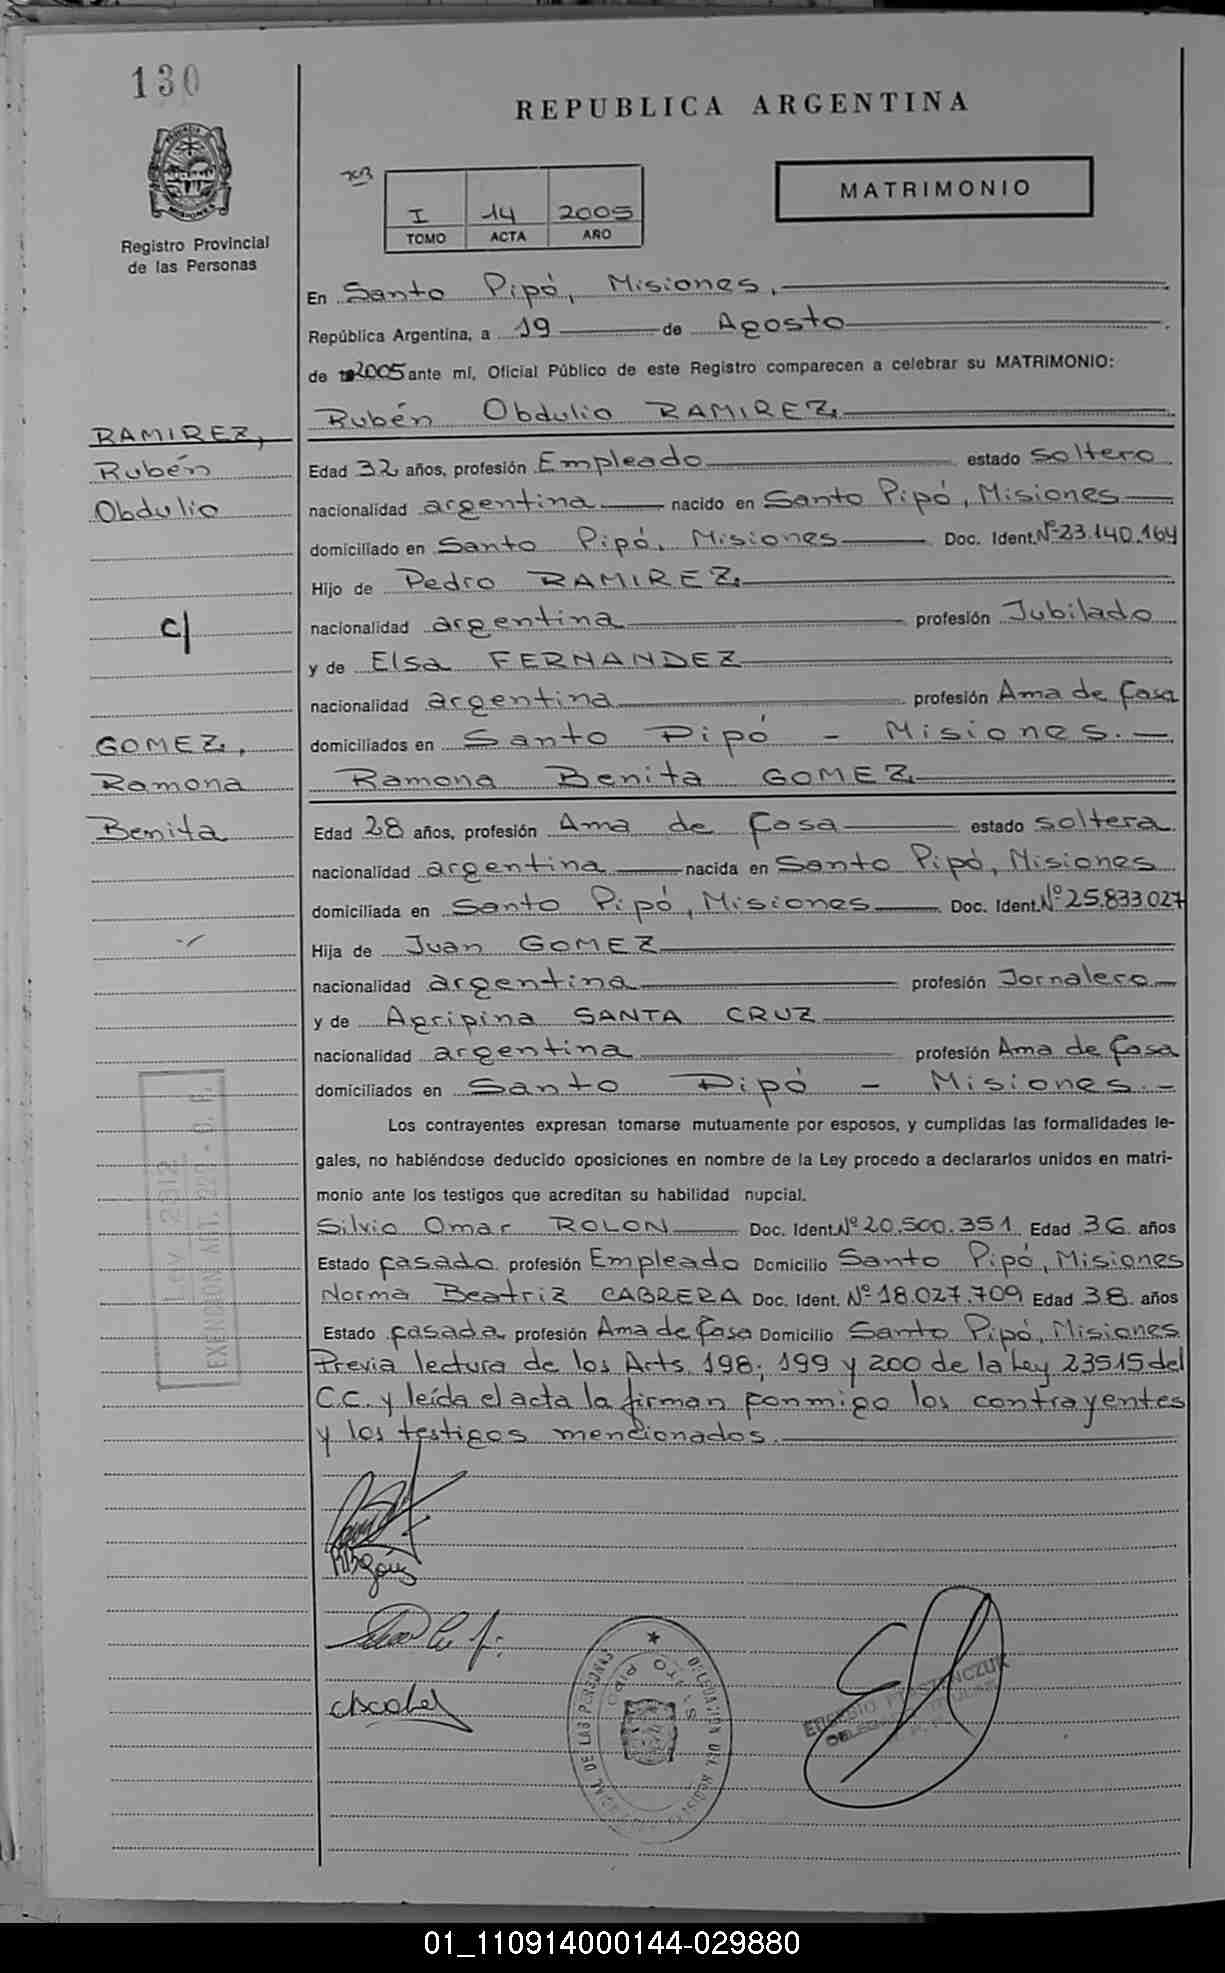 130
REPUBLICA ARGENTINA
MATRIMONIO
I 14 2005
TOMO ACTA AÑO
Registro Provincial
de las Personas
En Santo Pipó, Misiones.
República Argentina, a 19 de Agosto
de 2005 ante mí, Oficial Público de este Registro comparecen a celebrar su MATRIMONIO:
Rubén Obdulio RAMIREZ
RAMIREZ,
Rubén
Obdulio
c/
GOMEZ,
Ramona
Benita
Edad 32 años, profesión Empleado estado soltero
nacionalidad argentina nacido en Santo Pipó, Misiones
domiciliado en Santo Pipó, Misiones Doc. Ident. Nº 23.140.164
Hijo de Pedro RAMIREZ
nacionalidad argentina profesión Jubilado
y de Elsa FERNANDEZ
nacionalidad argentina profesión Ama de Casa
domiciliados en Santo Pipó - Misiones.-
Ramona Benita GOMEZ
Edad 28 años, profesión Ama de Casa estado soltera
nacionalidad argentina nacida en Santo Pipó, Misiones
domiciliada en Santo Pipó, Misiones Doc. Ident. Nº 25.833.027
Hija de Juan GOMEZ
nacionalidad argentina profesión Jornalero
y de Agripina SANTA CRUZ
nacionalidad argentina profesión Ama de Casa
domiciliados en Santo Pipó - Misiones.-
Los contrayentes expresan tomarse mutuamente por esposos, y cumplidas las formalidades le-
gales, no habiéndose deducido oposiciones en nombre de la Ley procedo a declararlos unidos en matri-
monio ante los testigos que acreditan su habilidad nupcial.
Silvio Omar ROLON Doc. Ident. Nº 20.500.351 Edad 36 años
Estado Casado profesión Empleado Domicilio Santo Pipó, Misiones
Norma Beatriz CABRERA Doc. Ident. Nº 18.027.709 Edad 38 años
Estado Casada profesión Ama de Casa Domicilio Santo Pipó, Misiones
Previa lectura de los Arts. 198; 199 y 200 de la Ley 23515 del
C.C. y leída el acta la firman Conmigo los contrayentes
y los testigos mencionados.
LEY 2312
EXENCION ART. 220 -
SANTO PIPO
01_110914000144-029880